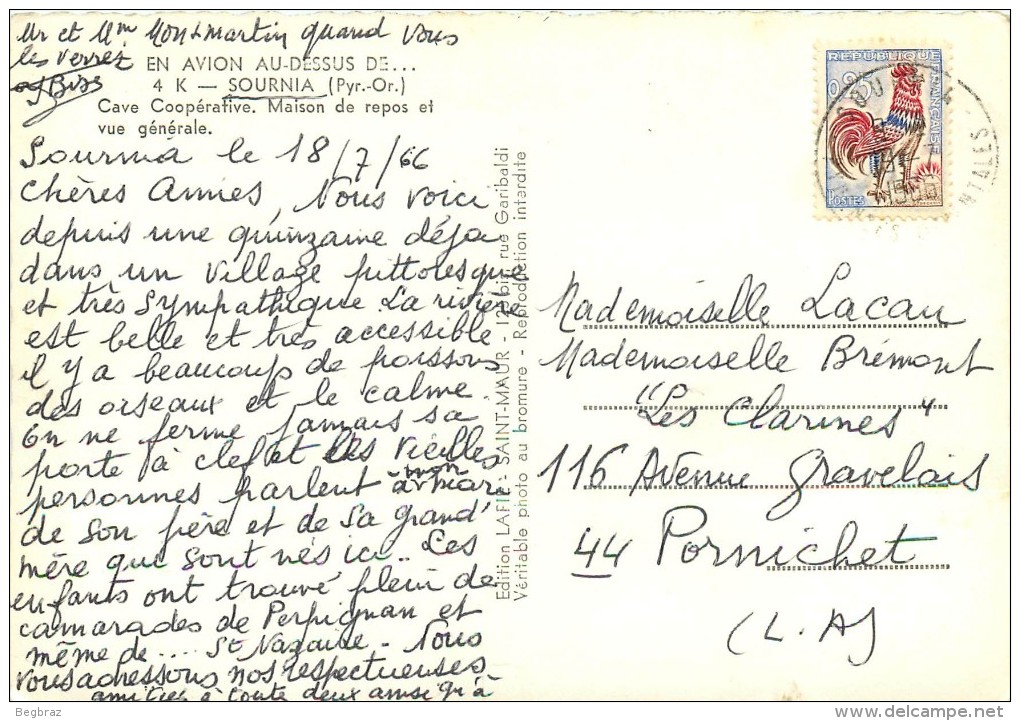 EN AVION AU-DESSUS DE...
4 K — SOURNIA (Pyr.-Or.)
Cave Coopérative. Maison de repos et
vue générale.
Sournia le 18/7/66
Chères Amies, Nous voici
depuis une quinzaine déja
dans un village pittoresque
et très sympathique. La rivière
est belle et très accessible
il y a beaucoup de poissons,
des oiseaux et le calme.
On ne ferme jamais sa
porte à clef et les vieilles
personnes parlent à mon mari
de son père et de sa grand'
mère que sont nés ici.. Les
enfants ont trouvé plein de
camarades de Perpignan et
même de.... St Nazaire - Nous
vous adressons nos respectueuses
amitiés à toute deux ainsi qu'à
Mr et Mme Montmartin quand vous
les verrez
Edition LAFIE - SAINT-MAUR - 129 bis, rue Garibaldi
Véritable photo au bromure - Reproduction interdite
REPUBLIQUE
FRANÇAISE
POSTES
Mademoiselle Lacau
Mademoiselle Brémont
"Les Clarines"
116 Avenue Gravelais
44 Pornichet
(L.A)
Begbraz
Delcampe.net